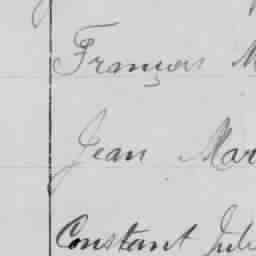 François M
Jean Mar
Constant Jul